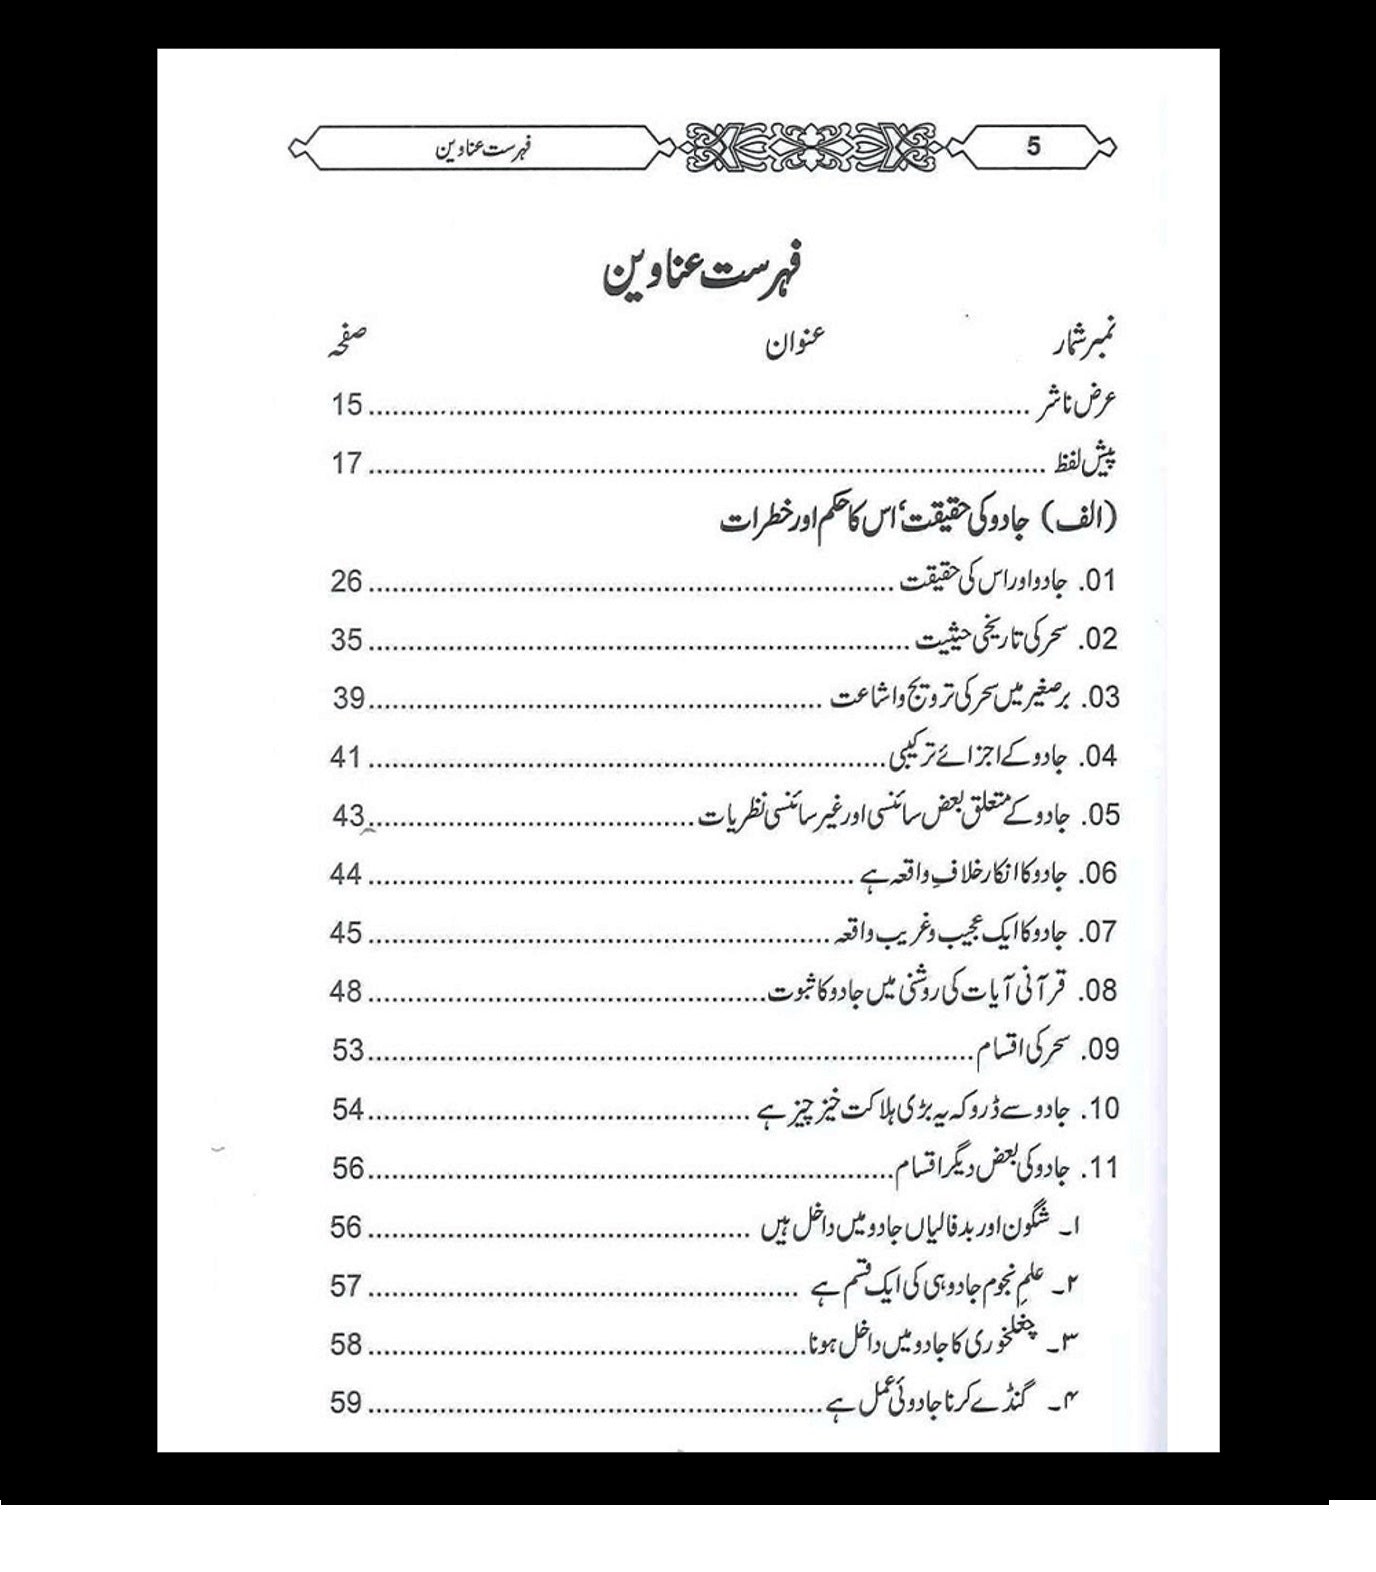 5 فہرست عناوین
فہرست عناوین
نمبر شمار عنوان صفحہ
عرض ناشر ........ 15
پیش لفظ ........ 17
(الف) جادو کی حقیقت، اس کا حکم اور خطرات
01. جادو اور اس کی حقیقت ........ 26
02. سحر کی تاریخی حیثیت ........ 35
03. برصغیر میں سحر کی ترویج و اشاعت ........ 39
04. جادو کے اجزائے ترکیبی ........ 41
05. جادو کے متعلق بعض سائنسی اور غیر سائنسی نظریات ........ 43
06. جادو کا انکار خلافِ واقعہ ہے ........ 44
07. جادو کا ایک عجیب و غریب واقعہ ........ 45
08. قرآنی آیات کی روشنی میں جادو کا ثبوت ........ 48
09. سحر کی اقسام ........ 53
10. جادو سے ڈرو کہ یہ بڑی ہلاکت خیز چیز ہے ........ 54
11. جادو کی بعض دیگر اقسام ........ 56
۱۔ شگون اور بدفالیاں جادو میں داخل ہیں ........ 56
۲۔ علمِ نجوم جادو ہی کی ایک قسم ہے ........ 57
۳۔ چغلخوری کا جادو میں داخل ہونا ........ 58
۴۔ گنڈے کرنا جادوئی عمل ہے ........ 59